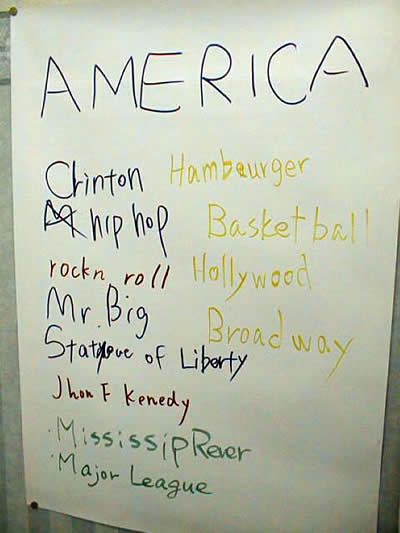 AMERICA
Clinton Hambeurger
hip hop Basketball
rockn roll Hollywood
Mr. Big
Broadway
Statue of Liberty
Jhon F Kenedy
·MississipRever
·Major League